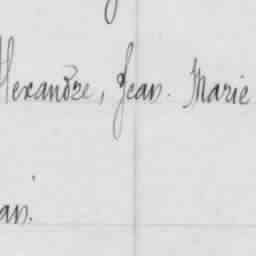 lexandre, Jean. Marie
an.